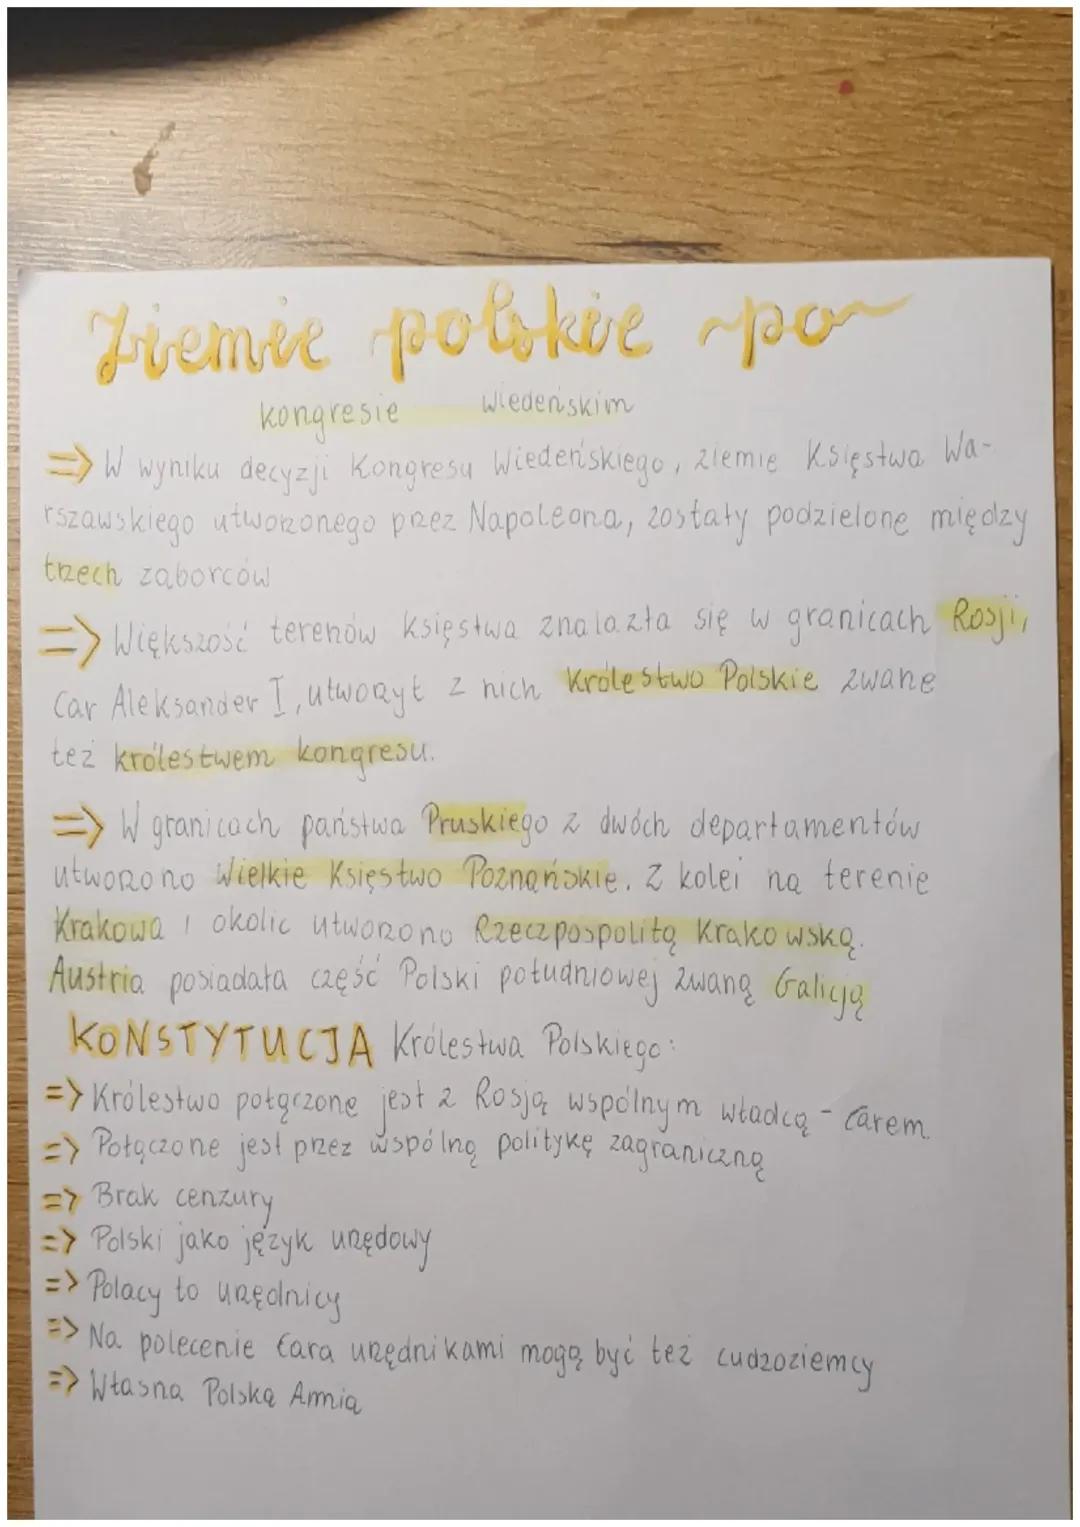 Ziemie polskie po
kongresie wiedeńskim
=> W wyniku decyzji Kongresu Wiedeńskiego, ziemie Księstwa Wa-
rszawskiego utworzonego przez Napoleona, zostały podzielone między
trzech zaborców
=> Większość terenów księstwa znalazła się w granicach Rosji,
Car Aleksander I, utworzył z nich Królestwo Polskie zwane
też królestwem kongresu.
=> W granicach państwa Pruskiego z dwóch departamentów
utworzono Wielkie Księstwo Poznańskie. Z kolei na terenie
Krakowa i okolic utworzono Rzeczpospolitą Krakowską.
Austria posiadała część Polski południowej zwaną Galicją
KONSTYTUCJA Królestwa Polskiego:
=> Królestwo połączone jest z Rosją wspólnym władcą - carem.
=> Połączone jest przez wspólną politykę zagraniczną
=> Brak cenzury
=> Polski jako język urzędowy
=> Polacy to urzędnicy
=> Na polecenie cara urzędnikami mogą być też cudzoziemcy
=> Własna Polska Armia